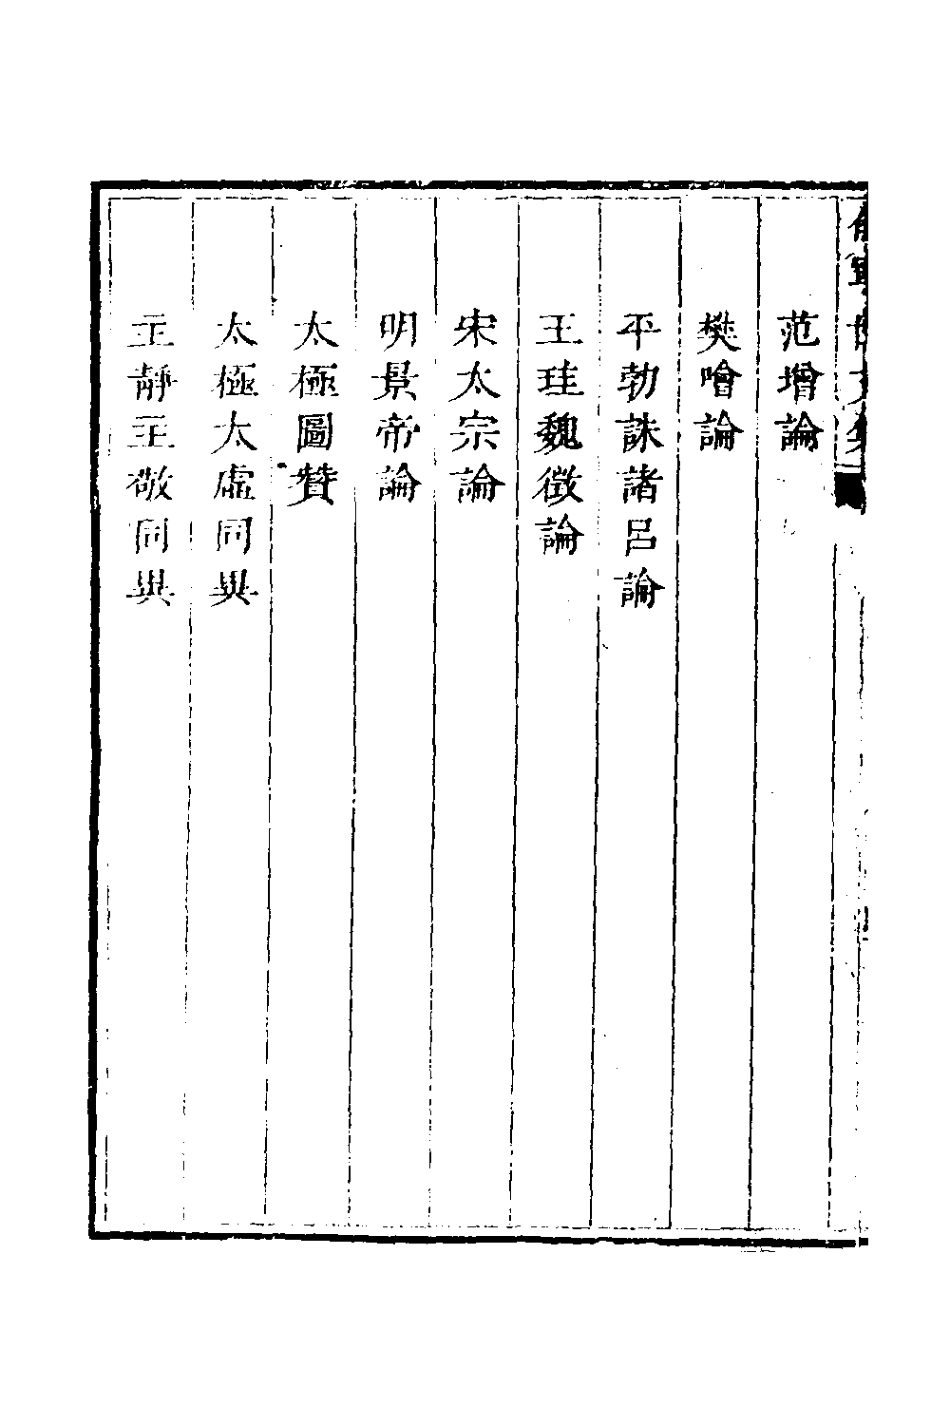 范增論
樊噲論
平勃誅諸呂論
王珪魏徵論
宋太宗論
明景帝論
太極圖贊
太極太虛同異
主靜主敬同異